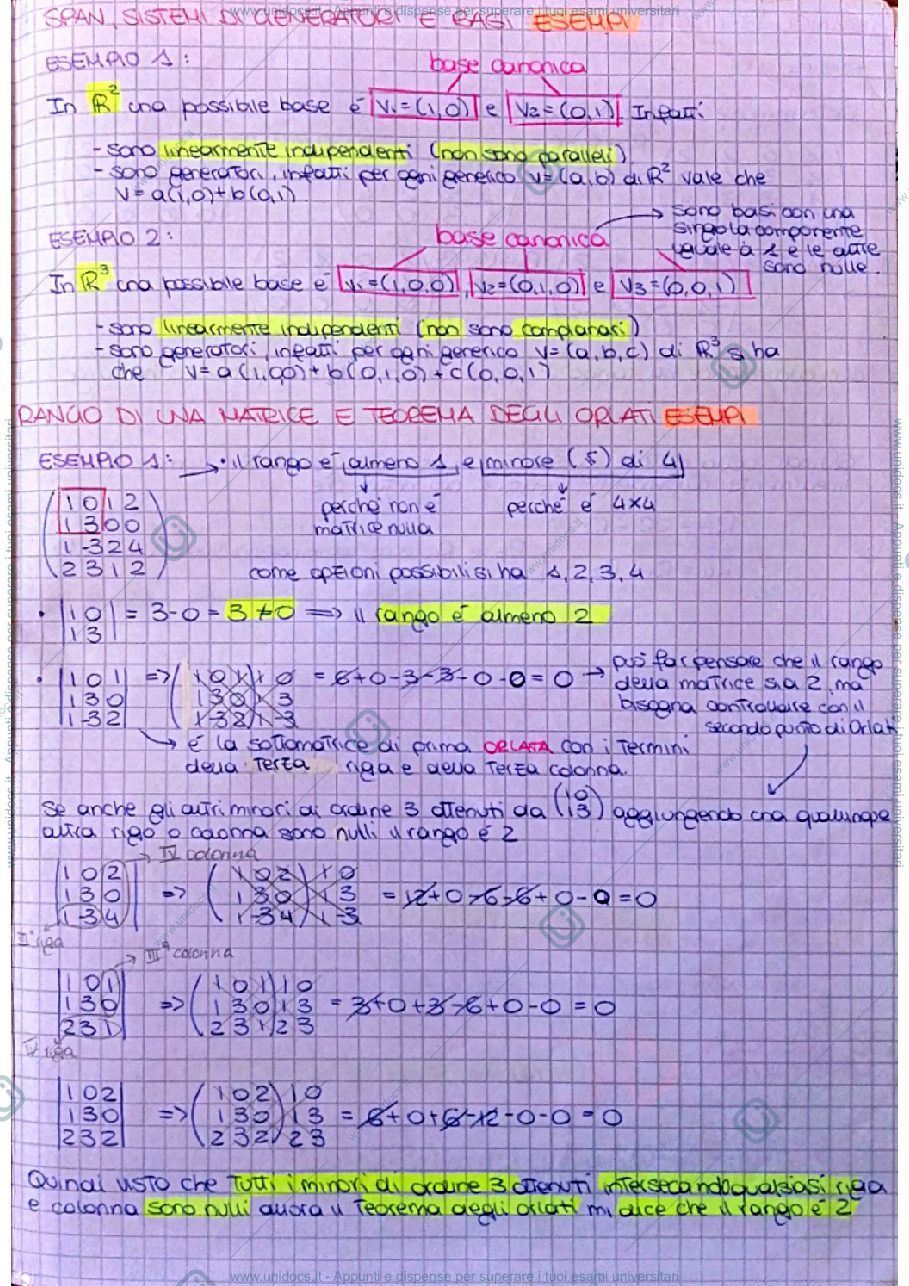 www.unidocs.it - Appunti e dispense per superare i tuoi esami universitari
SPAN, SISTEMI DI GENERATORI E BASI ESEMPI
ESEMPIO 1:
base canonica
In R² una possibile base è v1=(1,0) e v2=(0,1) Infatti:
- sono linearmente indipendenti (non sono paralleli)
- sono generatori, infatti per ogni generico v=(a,b) di R² vale che
v= a(1,0)+b(0,1)
→ sono basi con una
singola componente
uguale a 1 e le altre
sono nulle.
ESEMPIO 2:
base canonica
In R³ una possibile base è v1=(1,0,0), v2=(0,1,0) e v3=(0,0,1)
- sono linearmente indipendenti (non sono complanari)
- sono generatori, infatti per ogni generico v=(a,b,c) di R³ si ha
che v= a(1,0,0)+b(0,1,0)+c(0,0,1)
RANGO DI UNA MATRICE E TEOREMA DEGLI ORLATI ESEMPI
ESEMPIO 1: → • il rango è almeno 1, e minore (≤) di 4
perché non è
matrice nulla
perché è 4x4
1 0 1 2
1 3 0 0
1 -3 2 4
2 3 1 2
come opzioni possibili si ha 1,2,3,4
• |1 0| = 3-0 = 3 ≠ 0 => il rango è almeno 2
|1 3|
• |1 0 1| => ( 1 0 1 | 1 0 = 6+0-3-3-0-0=0 →
|1 3 0| ( 1 3 0 | 1 3
|1 -3 2| ( 1 -3 2 | 1 -3
può far pensare che il rango
della matrice sia 2, ma
bisogna controllare con il
secondo punto di Orlati
→ è la sottomatrice di prima ORLATA con i termini
della terza riga e della terza colonna.
Se anche gli altri minori di ordine 3 ottenuti da (1 0
1 3) aggiungendo una qualunque
altra riga o colonna sono nulli il rango è 2
→ IV colonna
|1 0 2| => ( 1 0 2 ) 1 0
|1 3 0| ( 1 3 0 ) 1 3 = 12+0-6-6+0-0=0
|1 -3 4| ( 1 -3 4 ) 1 -3
riga
→ IIIª colonna
|1 0 1| ( 1 0 1 | 1 0
|1 3 0| => ( 1 3 0 | 1 3 = 3+0+3-6+0-0 = 0
|2 3 1| ( 2 3 1 | 2 3
riga
|1 0 2| ( 1 0 2 ) 1 0
|1 3 0| => ( 1 3 0 ) 1 3 = 6+0+6-12-0-0 = 0
|2 3 2| ( 2 3 2 ) 2 3
Quindi visto che tutti i minori di ordine 3 ottenuti intersecando qualsiasi riga
e colonna sono nulli allora il Teorema degli orlati mi dice che il rango è 2
www.unidocs.it - Appunti e dispense per superare i tuoi esami universitari